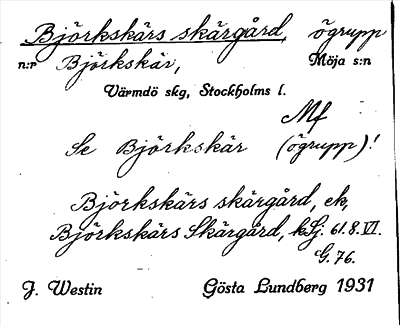 Björkskärs skärgård, ögrupp
n:r Björkskär, Möja s:n
Värmdö skg, Stockholms l.
Mf
Se Björkskär (ögrupp)!
Björkskärs skärgård, ek,
Björkskärs Skärgård, kSj: 61.8.VI.
G. 76.
J. Westin Gösta Lundberg 1931